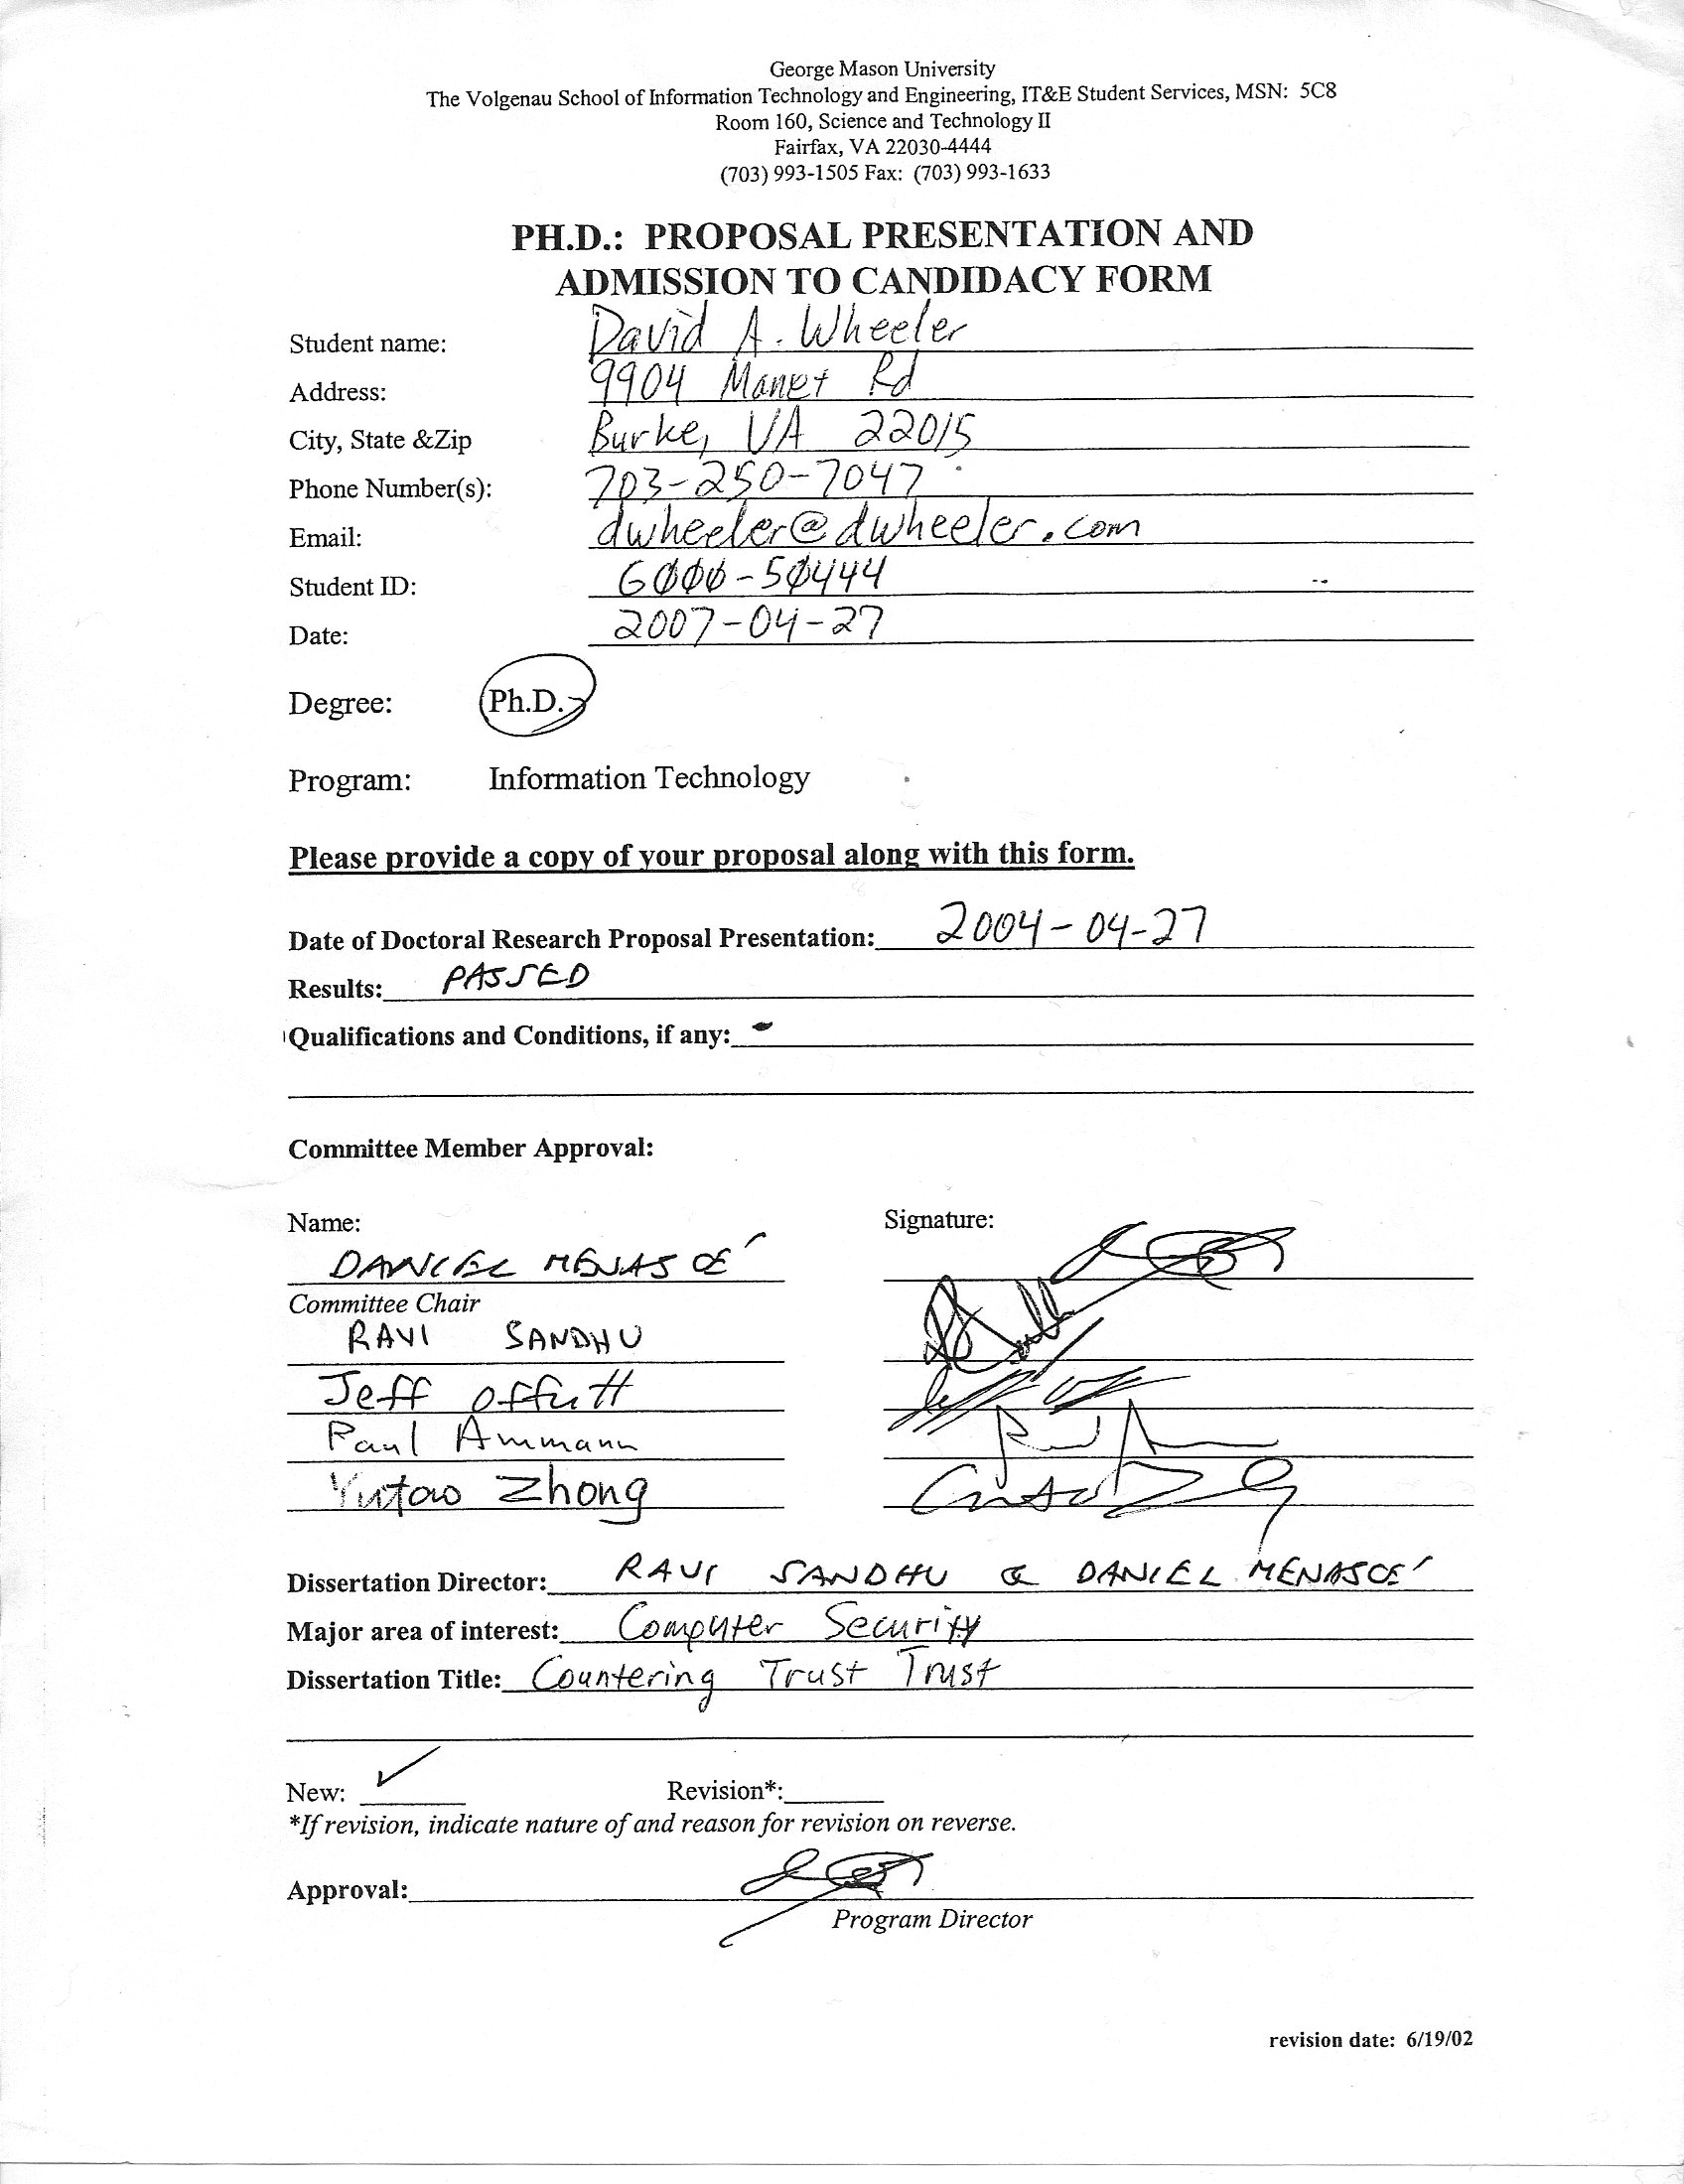 George Mason University
The Volgenau School of Information Technology and Engineering, IT&E Student Services, MSN: 5C8
Room 160, Science and Technology II
Fairfax, VA 22030-4444
(703) 993-1505 Fax: (703) 993-1633
PH.D.: PROPOSAL PRESENTATION AND
ADMISSION TO CANDIDACY FORM
Student name: David A. Wheeler
Address: 9904 Manet Rd
City, State &Zip Burke, VA 22015
Phone Number(s): 703-250-7047
Email: dwheeler@dwheeler.com
Student ID: 6000-50444
Date: 2007-04-27
Degree: Ph.D.
Program: Information Technology
Please provide a copy of your proposal along with this form.
Date of Doctoral Research Proposal Presentation: 2004-04-27
Results: PASSED
Qualifications and Conditions, if any: -
Committee Member Approval:
Name: Signature:
DANIEL MENASCÉ
Committee Chair
RAVI SANDHU
Jeff Offutt
Paul Ammann
Yutao Zhong
Dissertation Director: RAVI SANDHU & DANIEL MENASCÉ
Major area of interest: Computer Security
Dissertation Title: Countering Trust Trust
New: ✓ Revision*:
*If revision, indicate nature of and reason for revision on reverse.
Approval:
Program Director
revision date: 6/19/02